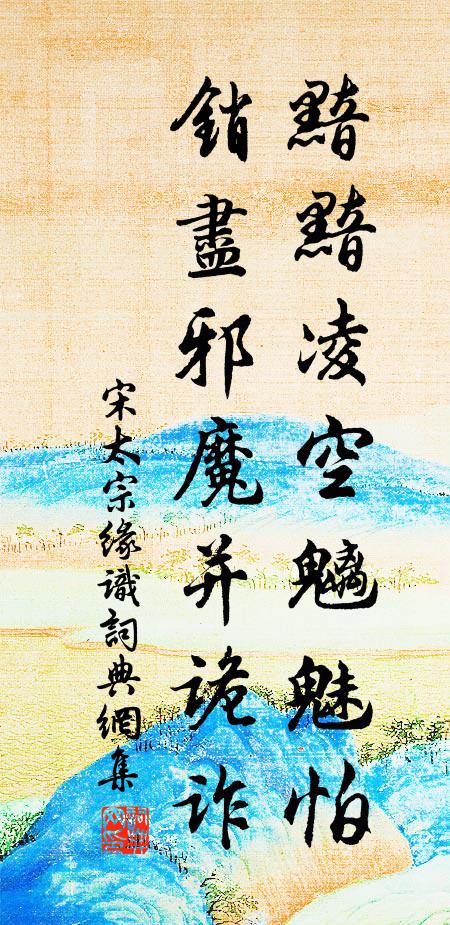 黯黯凌空魑魅怕
銷盡邪魔并詭诈
宋太宗緣識詞典網集